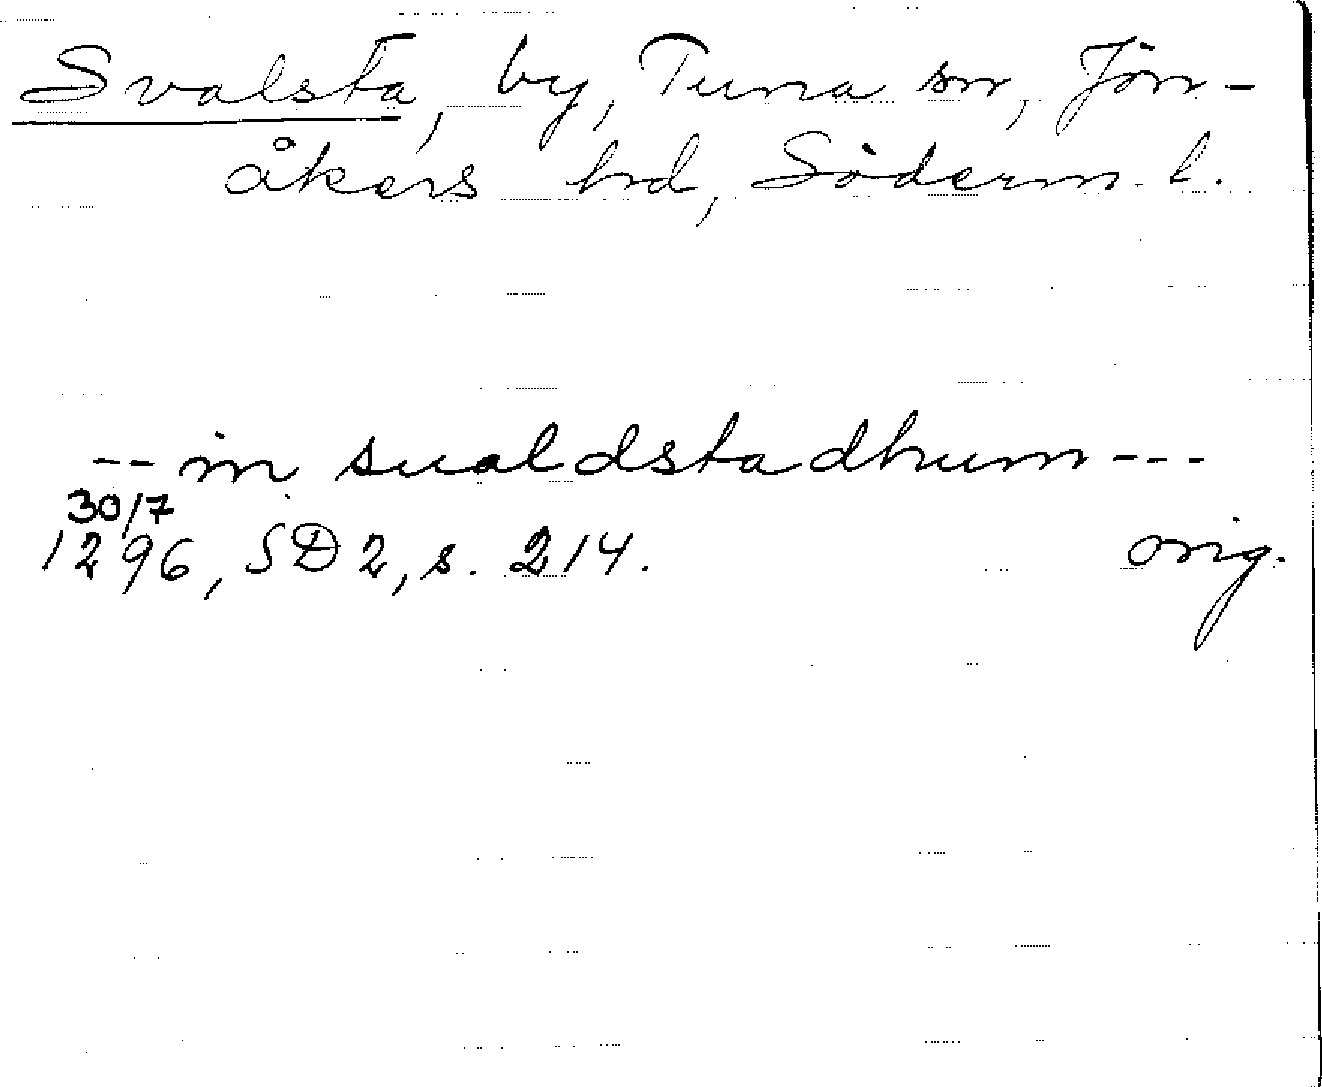 Svalsta, by, Tuna sn, Jön-
åkers hd, Söderm. l.
-- in sualdstadhum ---
30/7
1296, SD 2, s. 214. orig.